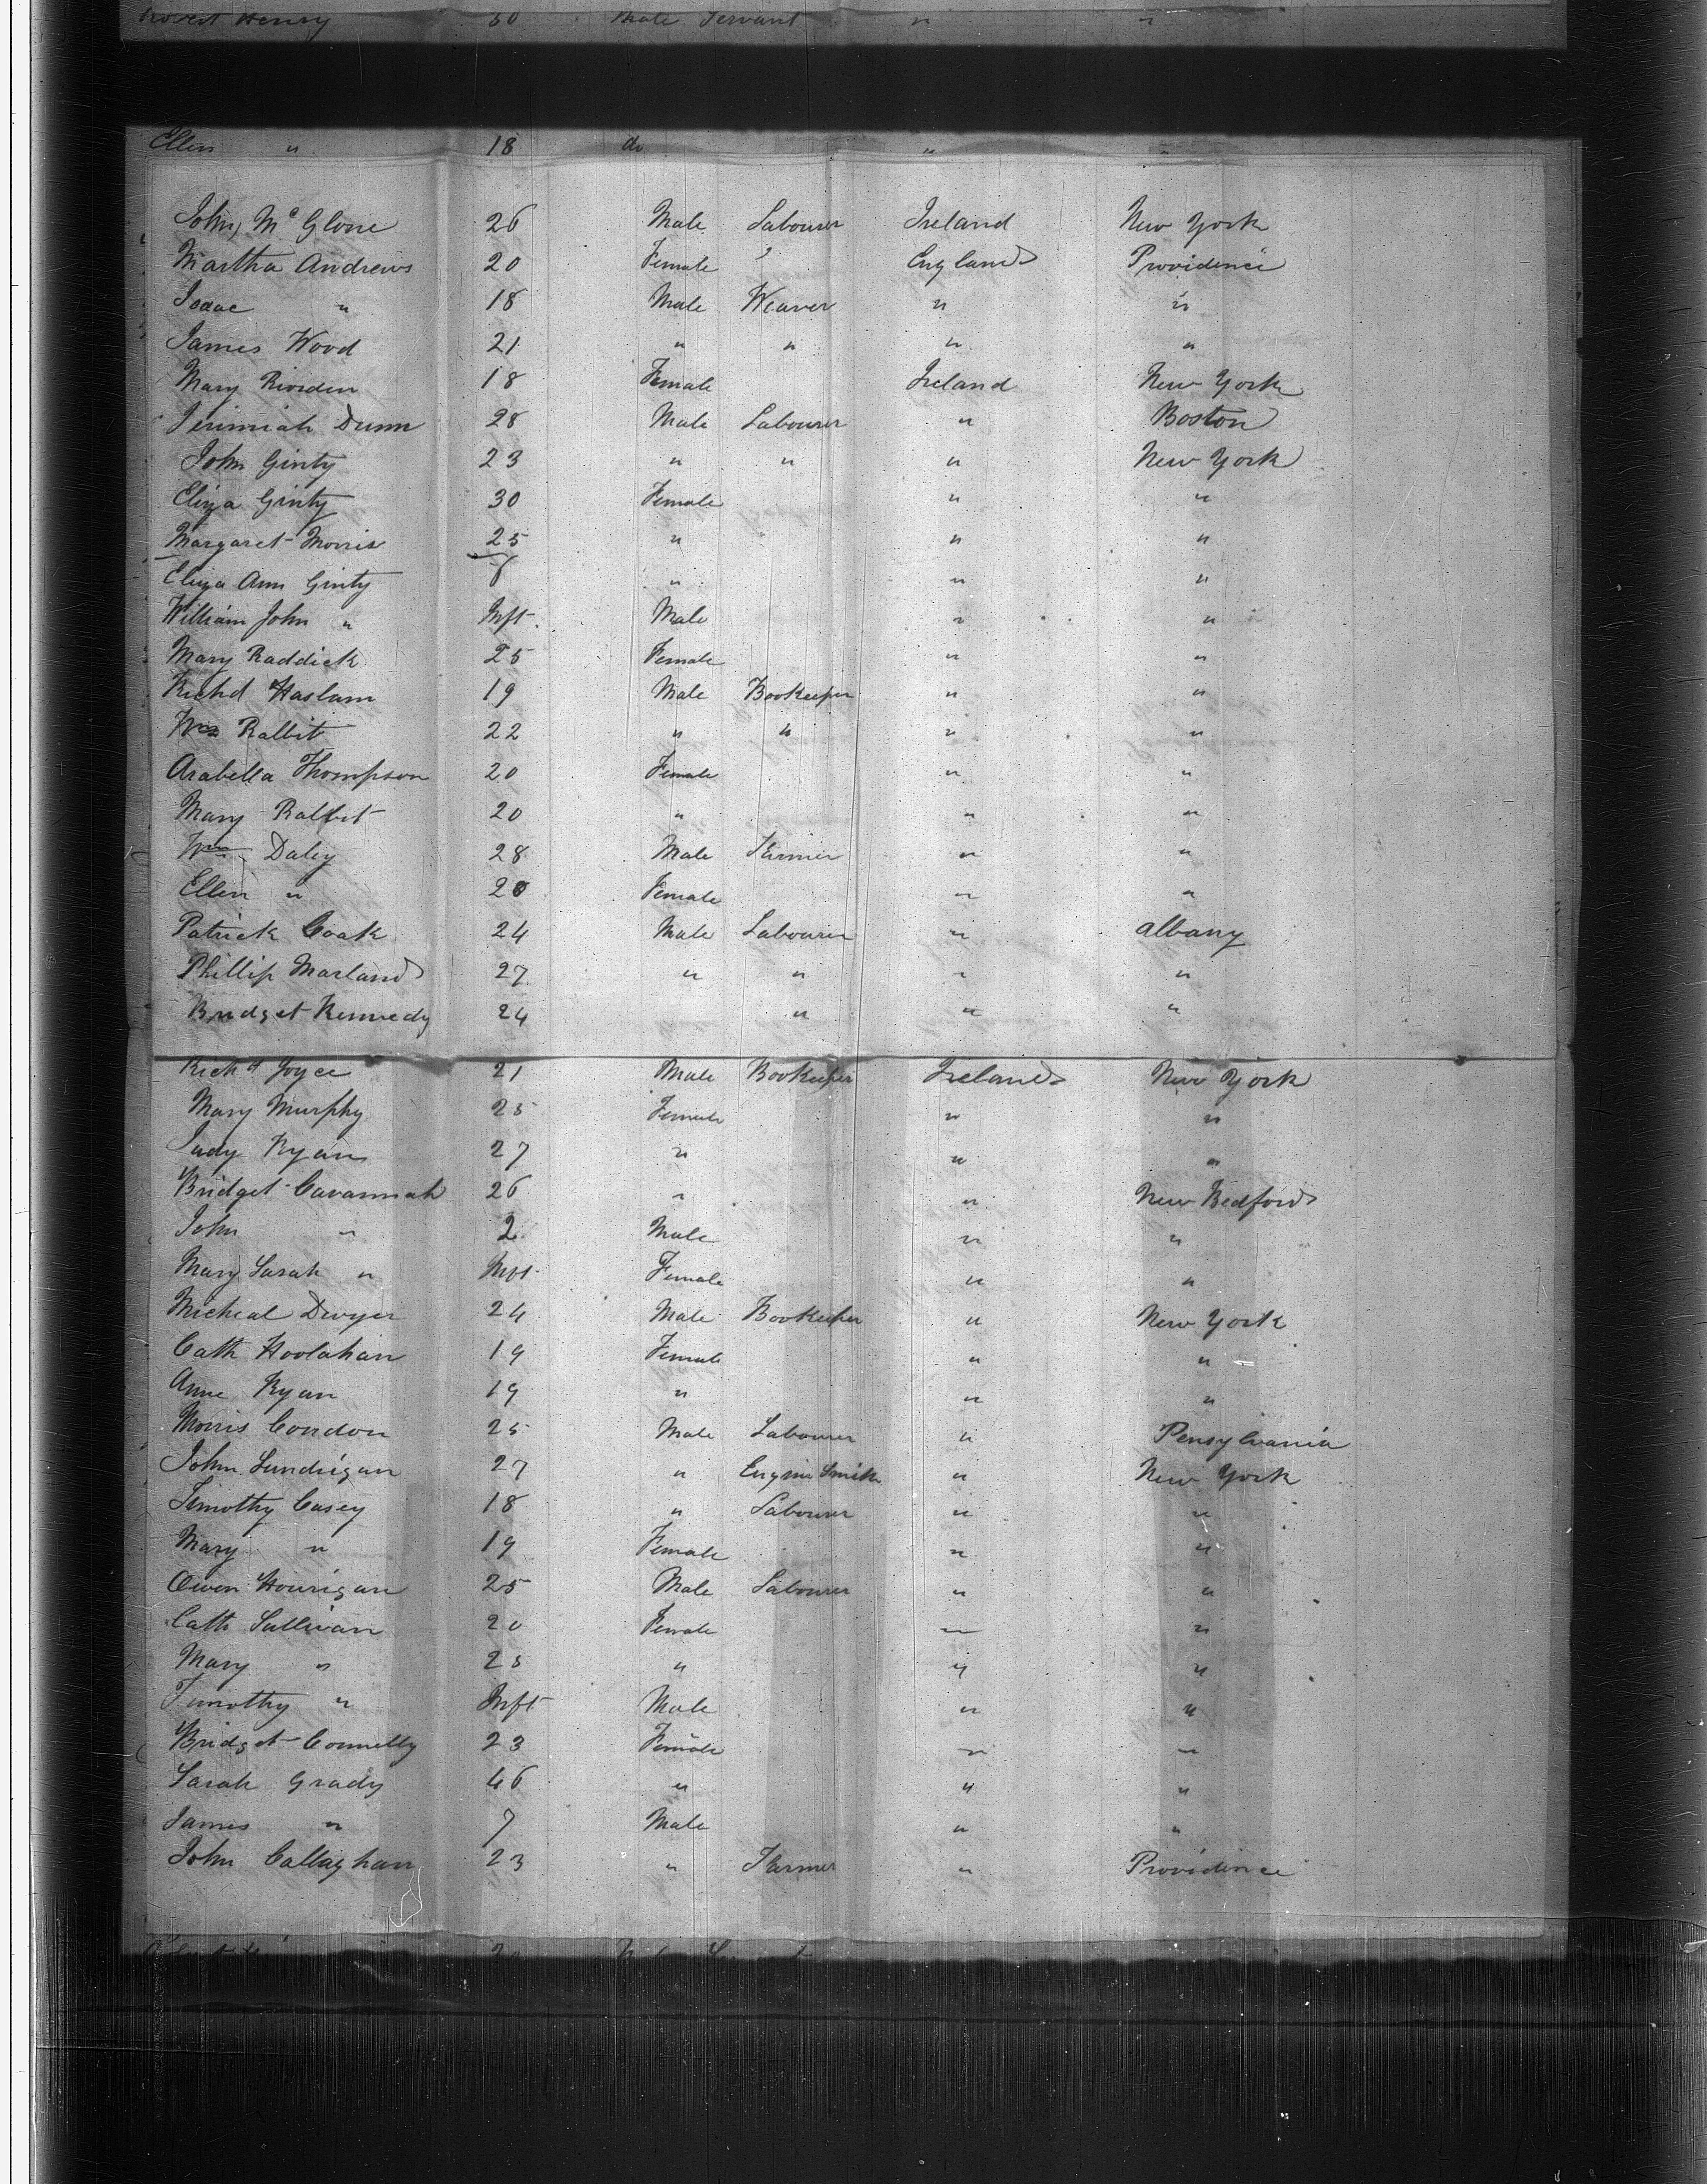 Robert Henry 30 Male Servant " "
Ellen " 18 do " "
John McGlone 26 Male Labourer Ireland New York
Martha Andrews 20 Female " England Providence
Isaac " 18 Male Weaver " "
James Wood 21 " " " "
Mary Riorden 18 Female Ireland New York
Jerimiah Dunn 28 Male Labourer " Boston
John Ginty 23 " " " New York
Eliza Ginty 30 Female " "
Margaret Morris 25 " " "
Eliza Ann Ginty 8 " " "
William John " Inft. Male " "
Mary Raddick 25 Female " "
Richd Haslam 19 Male Bookeeper " "
Wm Ralbit 22 " " " "
Arabella Thompson 20 Female " "
Mary Ralbit 20 " " "
Wm Daley 28 Male Farmer " "
Ellen " 20 Female " "
Patrick Coak 24 Male Labourer " Albany
Phillip Marland 27 " " " "
Bridget Kennedy 24 " " "
Richd Joyce 21 Male Bookeeper Ireland New York
Mary Murphy 25 Female " "
Judy Ryan 27 " " "
Bridget Cavannah 26 " " New Bedford
John " 2 Male " "
Mary Sarah " Inft. Female " "
Micheal Dwyer 24 Male Bookeeper " New York
Cath Hoolahan 19 Female " "
Anne Ryan 19 " " "
Morris Condon 25 Male Labourer " Pensylvania
John Lundrigan 27 " Engine Smith " New York
Timothy Casey 18 " Labourer " "
Mary " 19 Female " "
Owen Hourigan 25 Male Labourer " "
Cath Sullivan 20 Female " "
Mary " 25 " " "
Timothy " Inft Male " "
Bridget Connelly 23 Female " "
Sarah Grady 46 " " "
James " 7 Male " "
John Callaghan 23 " Farmer " Providence